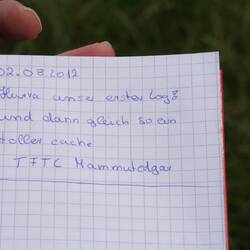 02.08.2012
Hurra unser erster Log!
und dann gleich so ein
toller cache
TFTC Mammutedgar